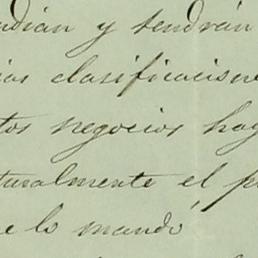 ndian y tendrán
ias clasificacione
tos negocios hay
turalmente el p
e lo mandó